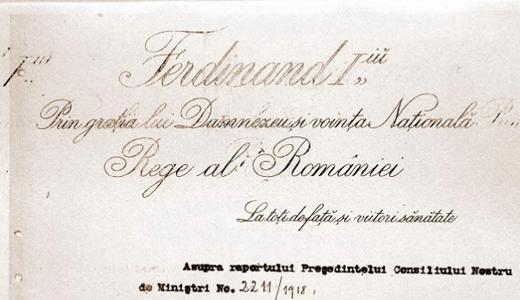 Ferdinand I iu
Prin grația lui Dumnezeu și voința Națională
Rege al României
La toți de față și viitori sănătate
Asupra raportului Președintelui Consiliului Nostru
de Miniștri No. 2211/1918,